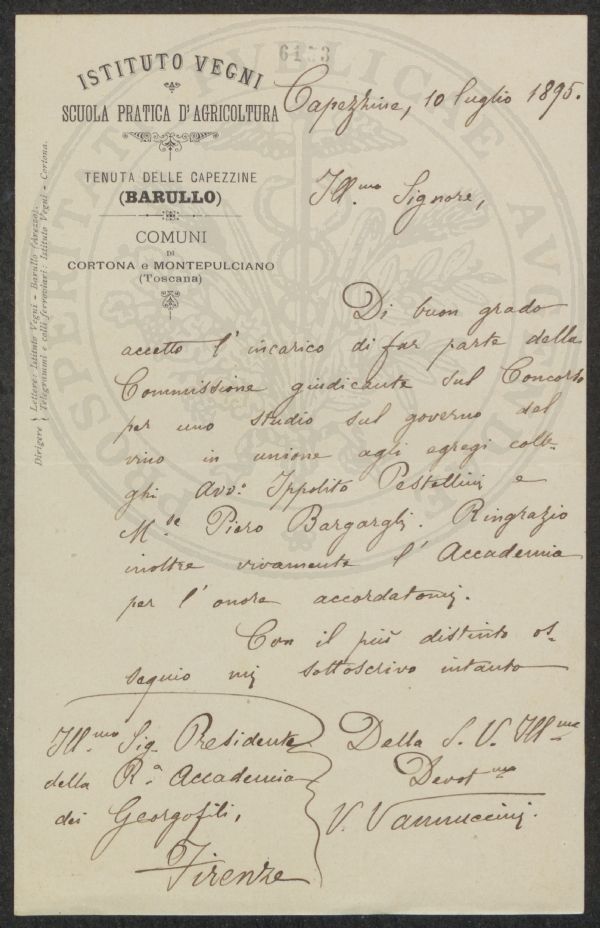 6153
ISTITUTO VEGNI
SCUOLA PRATICA D'AGRICOLTURA
TENUTA DELLE CAPEZZINE
(BARULLO)
COMUNI
DI
CORTONA e MONTEPULCIANO
(Toscana)
Dirigere { Lettere: Istituto Vegni - Barullo (Arezzo).
Telegrammi e colli ferroviari: Istituto Vegni - Cortona.
PROSPERITATI PUBLICAE AUGENDAE
Capezzine, 10 luglio 1895.
Ill.mo Signore,
Di buon grado
accetto l'incarico di far parte della
Commissione giudicante sul Concorso
per uno studio sul governo del
vino in unione agli egregi colle-
ghi Avv.o Ippolito Pestellini e
M.se Piero Bargagli. Ringrazio
inoltre vivamente l'Accademia
per l'onore accordatomi.
Con il più distinto os-
sequio mi sottoscrivo intanto
Della S. V. Ill.ma
Devot.mo
V. Vannuccini.
Ill.mo Sig. Presidente
della R.a Accademia
dei Georgofili,
Firenze